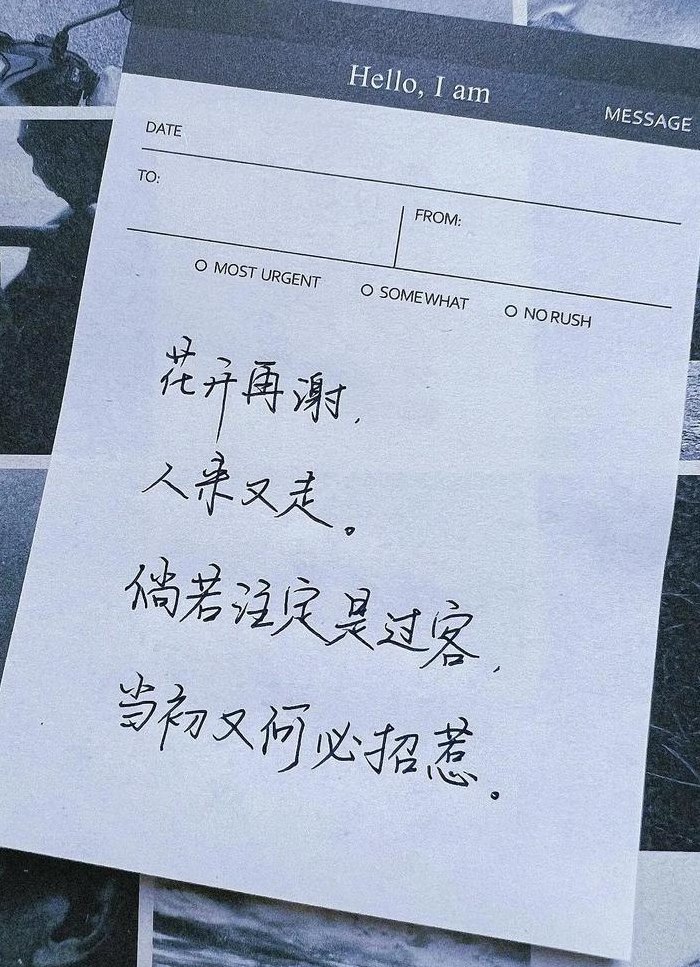 Hello, I am
MESSAGE
DATE
TO:
FROM:
O MOST URGENT
O SOMEWHAT
O NO RUSH
花开再谢,
人来又走。
倘若注定是过客,
当初又何必招惹。